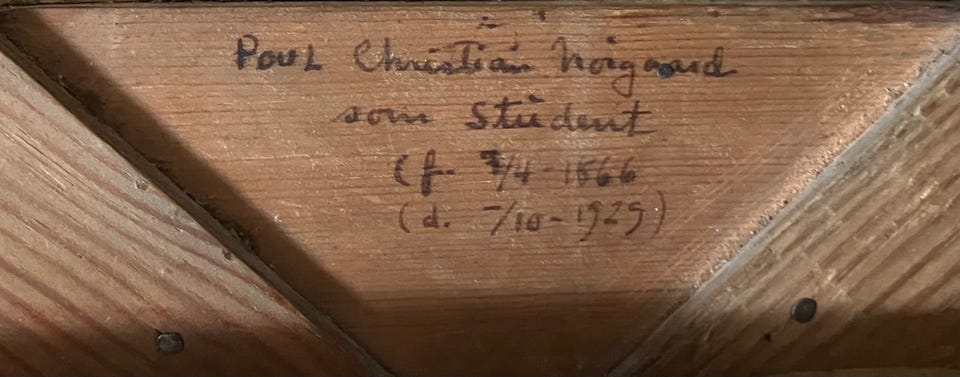 Poul Christian Norgaard
som Student
(f. 7/4-1866
(d. 7/10-1929)